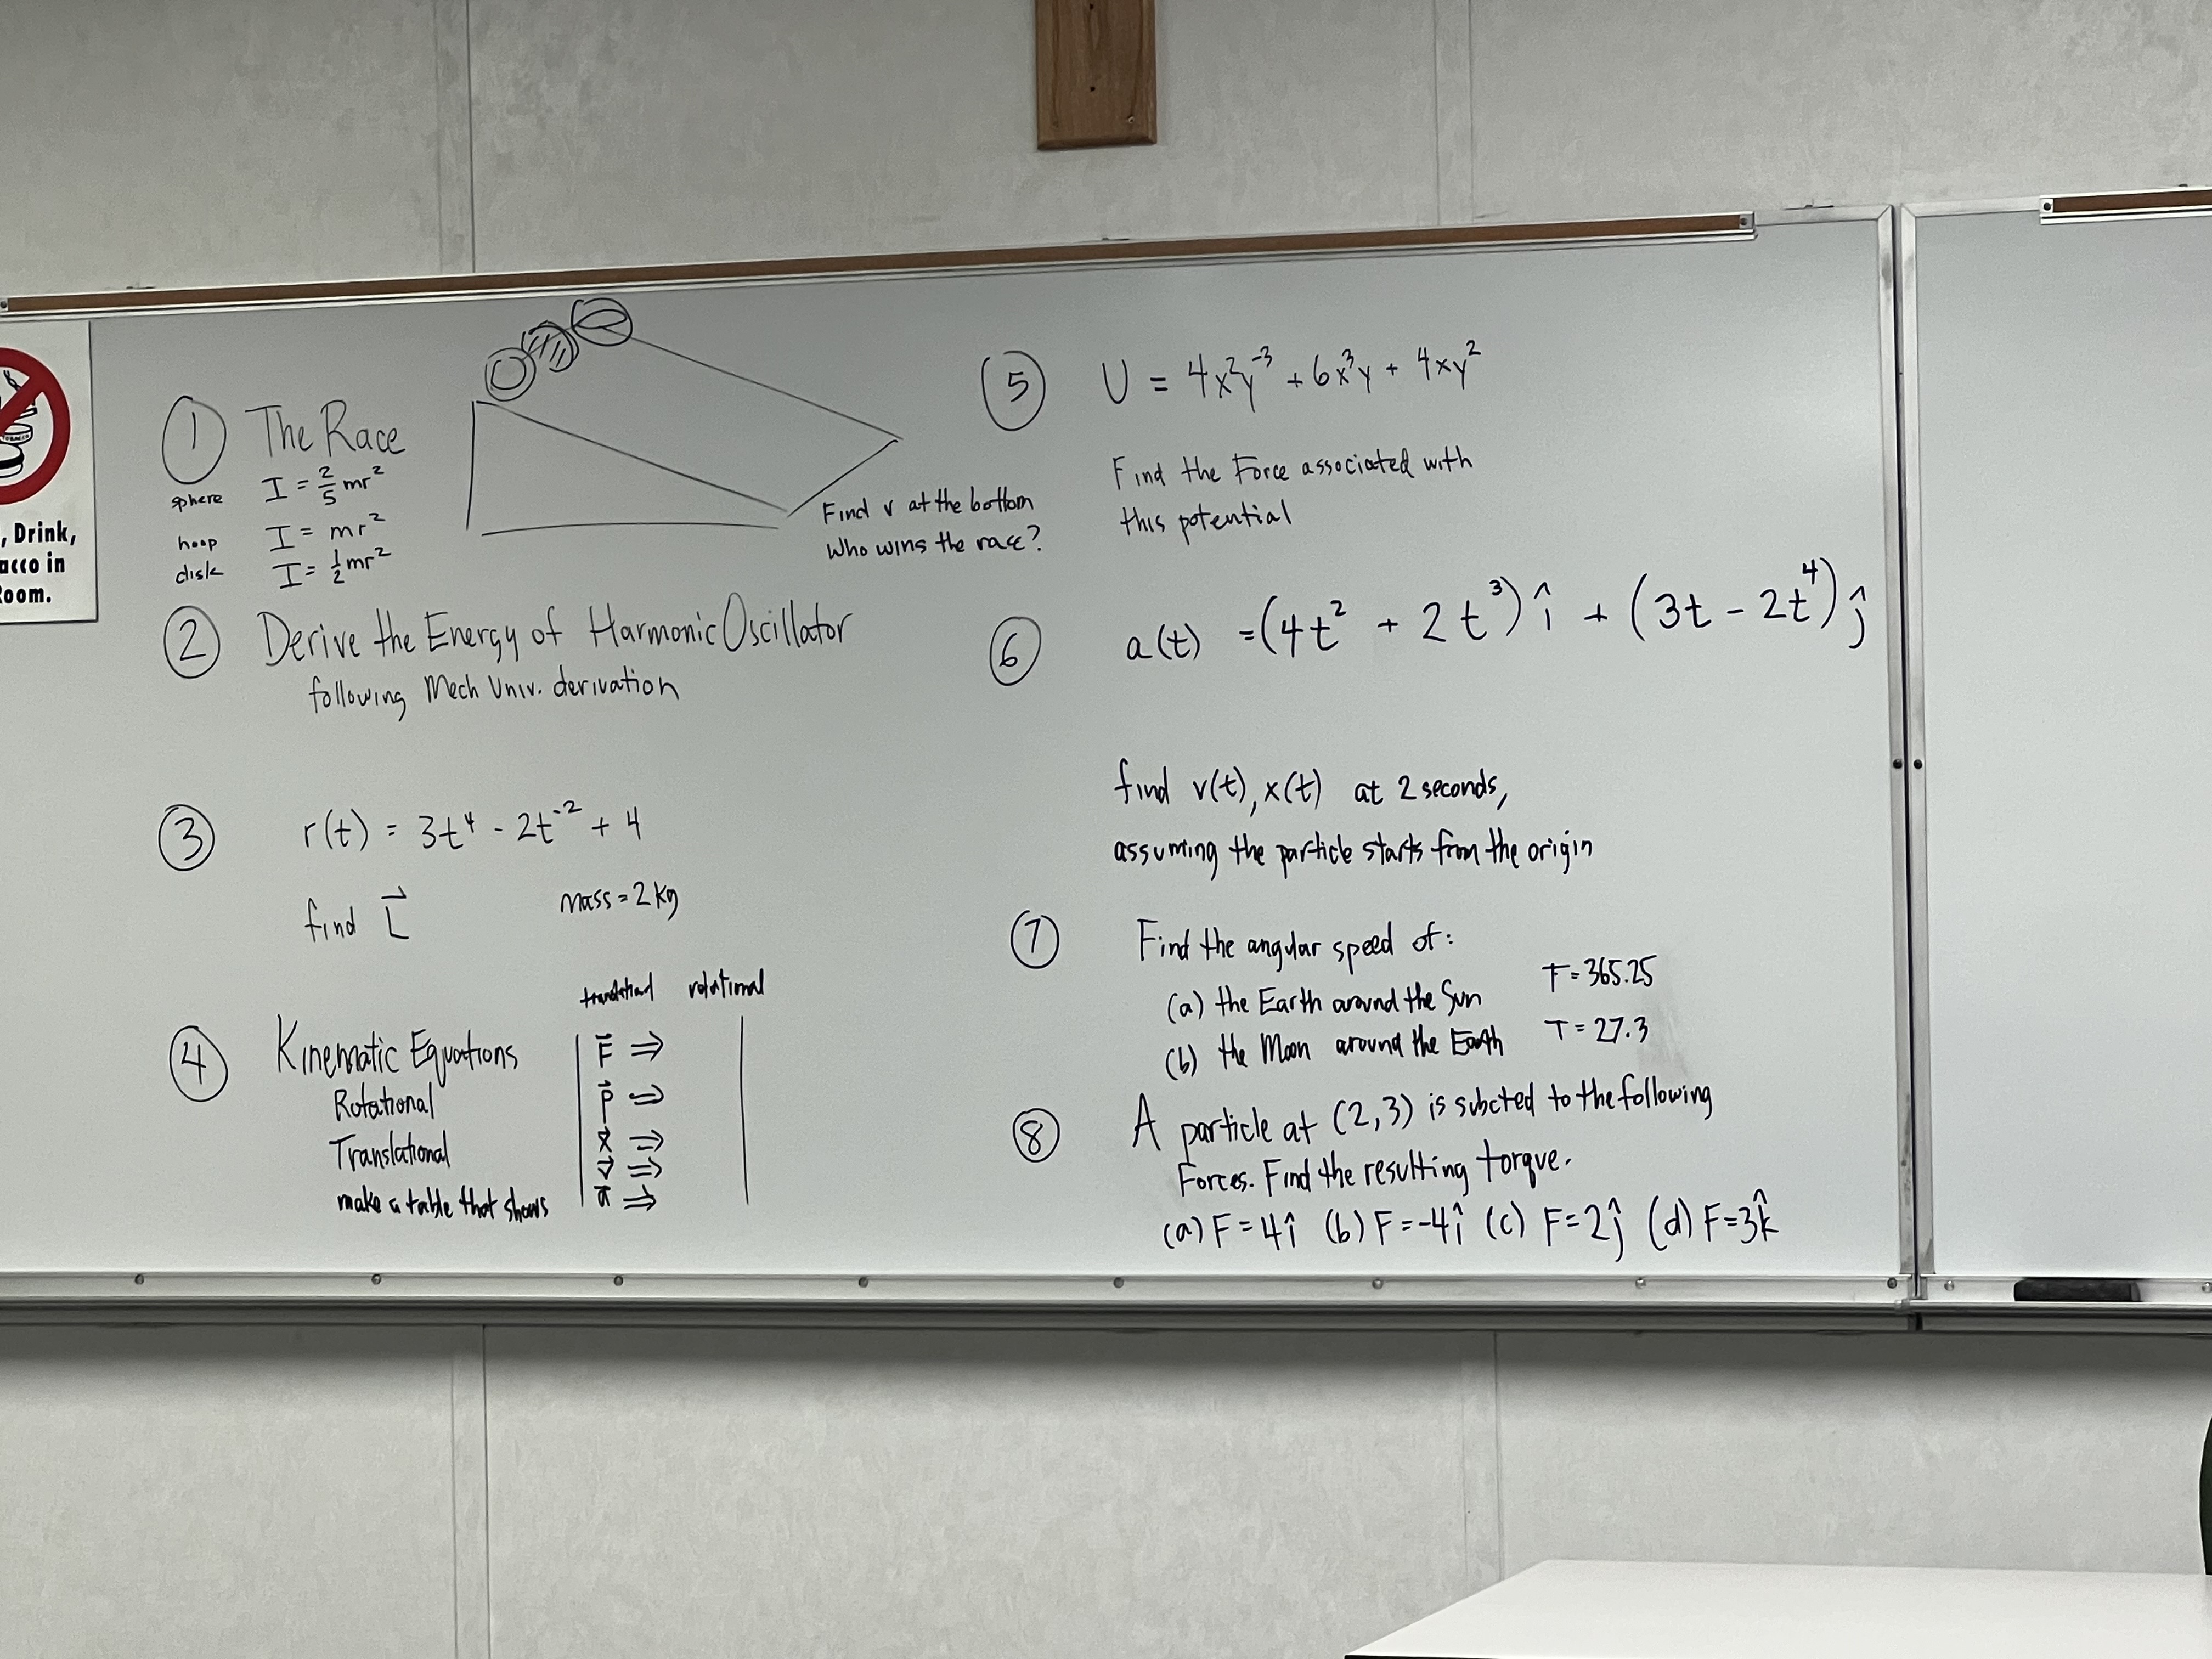 , Drink,
acco in
Room.
① The Race
sphere I = 2/5 mr²
hoop I = mr²
disk I = 1/2 mr²
Find v at the bottom
Who wins the race?
② Derive the Energy of Harmonic Oscillator
following Mech Univ. derivation
③ r(t) = 3t⁴ - 2t⁻² + 4
find L⃗ mass = 2 kg
rotational
④ Kinematic Equations
Rotational
Translational
make a table that shows
F⃗ ⇒
p⃗ ⇒
x⃗ ⇒
v⃗ ⇒
a⃗ ⇒
⑤ U = 4x²y⁻³ + 6x³y + 4xy²
Find the Force associated with
this potential
⑥ a(t) = (4t² + 2t³) î + (3t - 2t⁴) ĵ
find v(t), x(t) at 2 seconds,
assuming the particle starts from the origin
⑦ Find the angular speed of:
(a) the Earth around the Sun T = 365.25
(b) the Moon around the Earth T = 27.3
⑧ A particle at (2,3) is subcted to the following
Forces. Find the resulting torque.
(a) F = 4î (b) F = -4î (c) F = 2ĵ (d) F = 3k̂